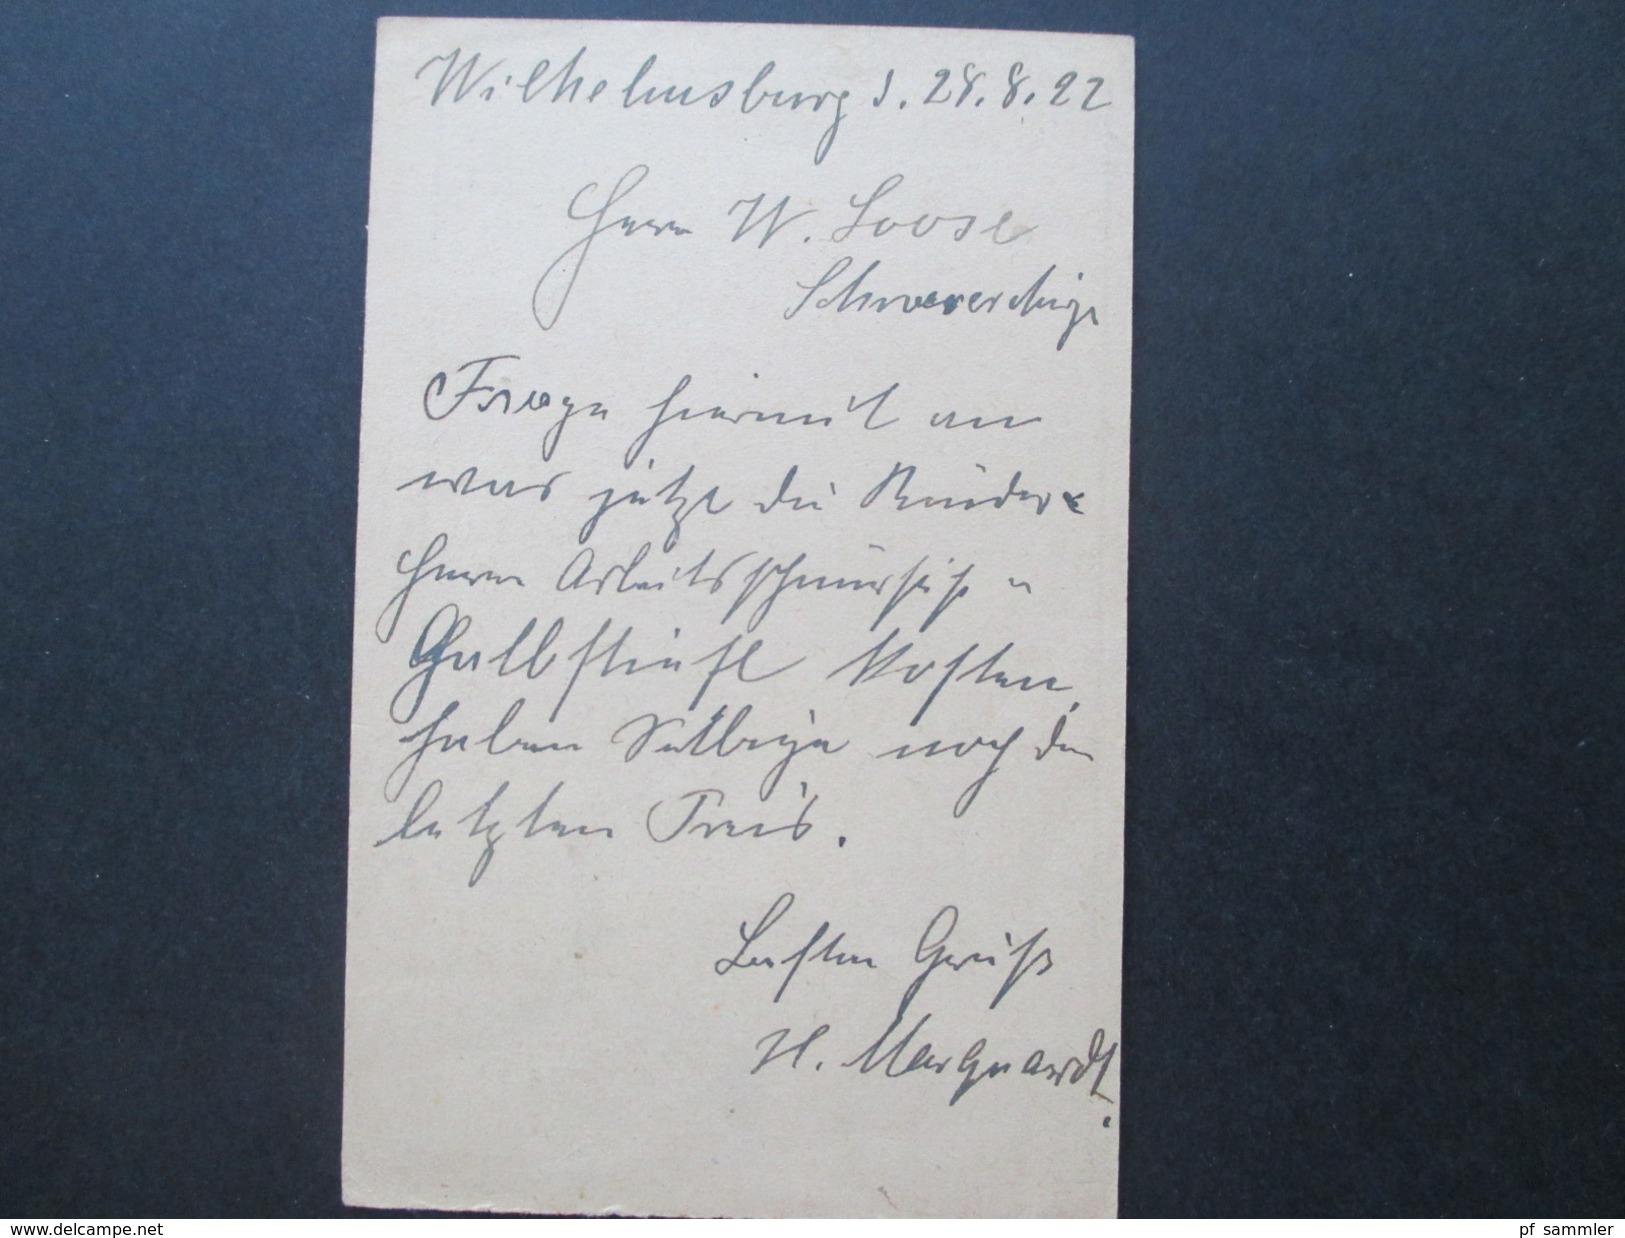 Wilhelmsburg d. 28.8.22
Herrn W. Loose
Schneverdinge
Frage hiermit an
was jetzt die
Herrn Arbeitsschnürsch u
Halbstiefel kosten,
haben Selbige noch den
letzten Preis.
Besten Gruß
H. Marquardt.
www.delcampe.net
pf_sammler